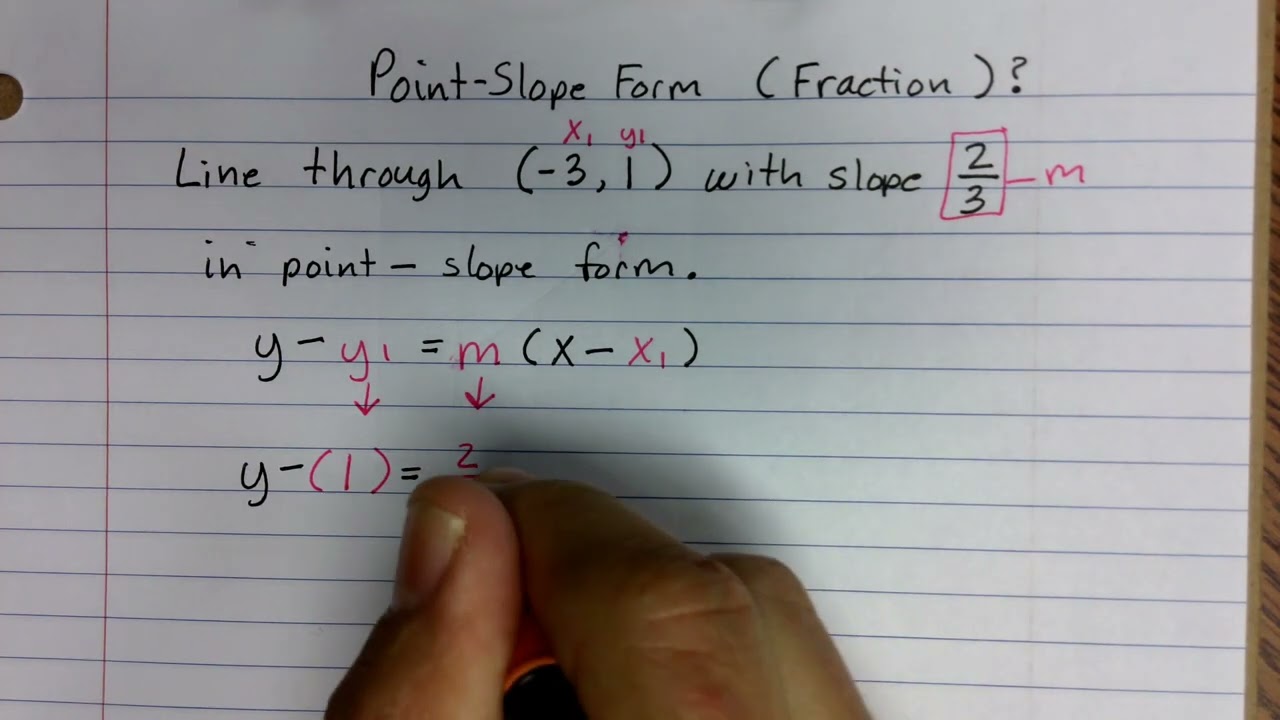 Point-Slope Form (Fraction)?
x₁ y₁
Line through (-3, 1) with slope 2/3 — m
in point - slope form.
y - y₁ = m (x - x₁)
↓ ↓
y - (1) = 2